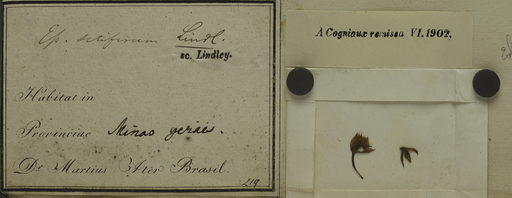 Ep. setiferum Lindl.
sc. Lindley.
Habitat in
Provinciae Minas geraës.
Dr Martius Iter Brasil.
219
A Cogniaux remissa VI. 1902.